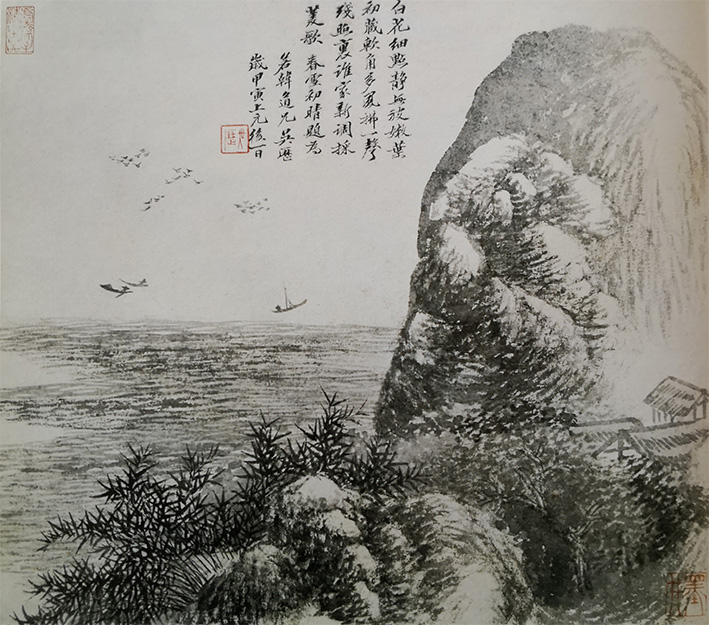 白花細點靜無波嫩葉
初藏軟角多風拂一聲
殘照裏誰家新調採
菱歌 春雪初晴題為
若韓道兄 吳歷
歲甲寅上元後一日